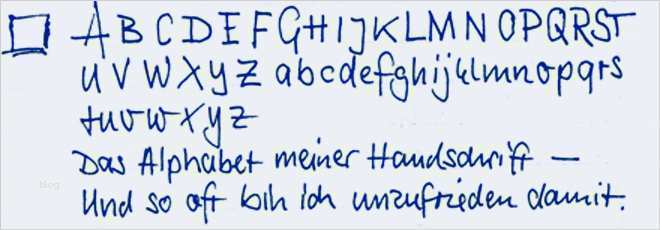 A B C D E F G H I J K L M N O P Q R S T
U V W X Y Z a b c d e f g h i j k l m n o p q r s
t u v w x y z
Das Alphabet meiner Handschrift –
Und so oft bin ich unzufrieden damit.
blog